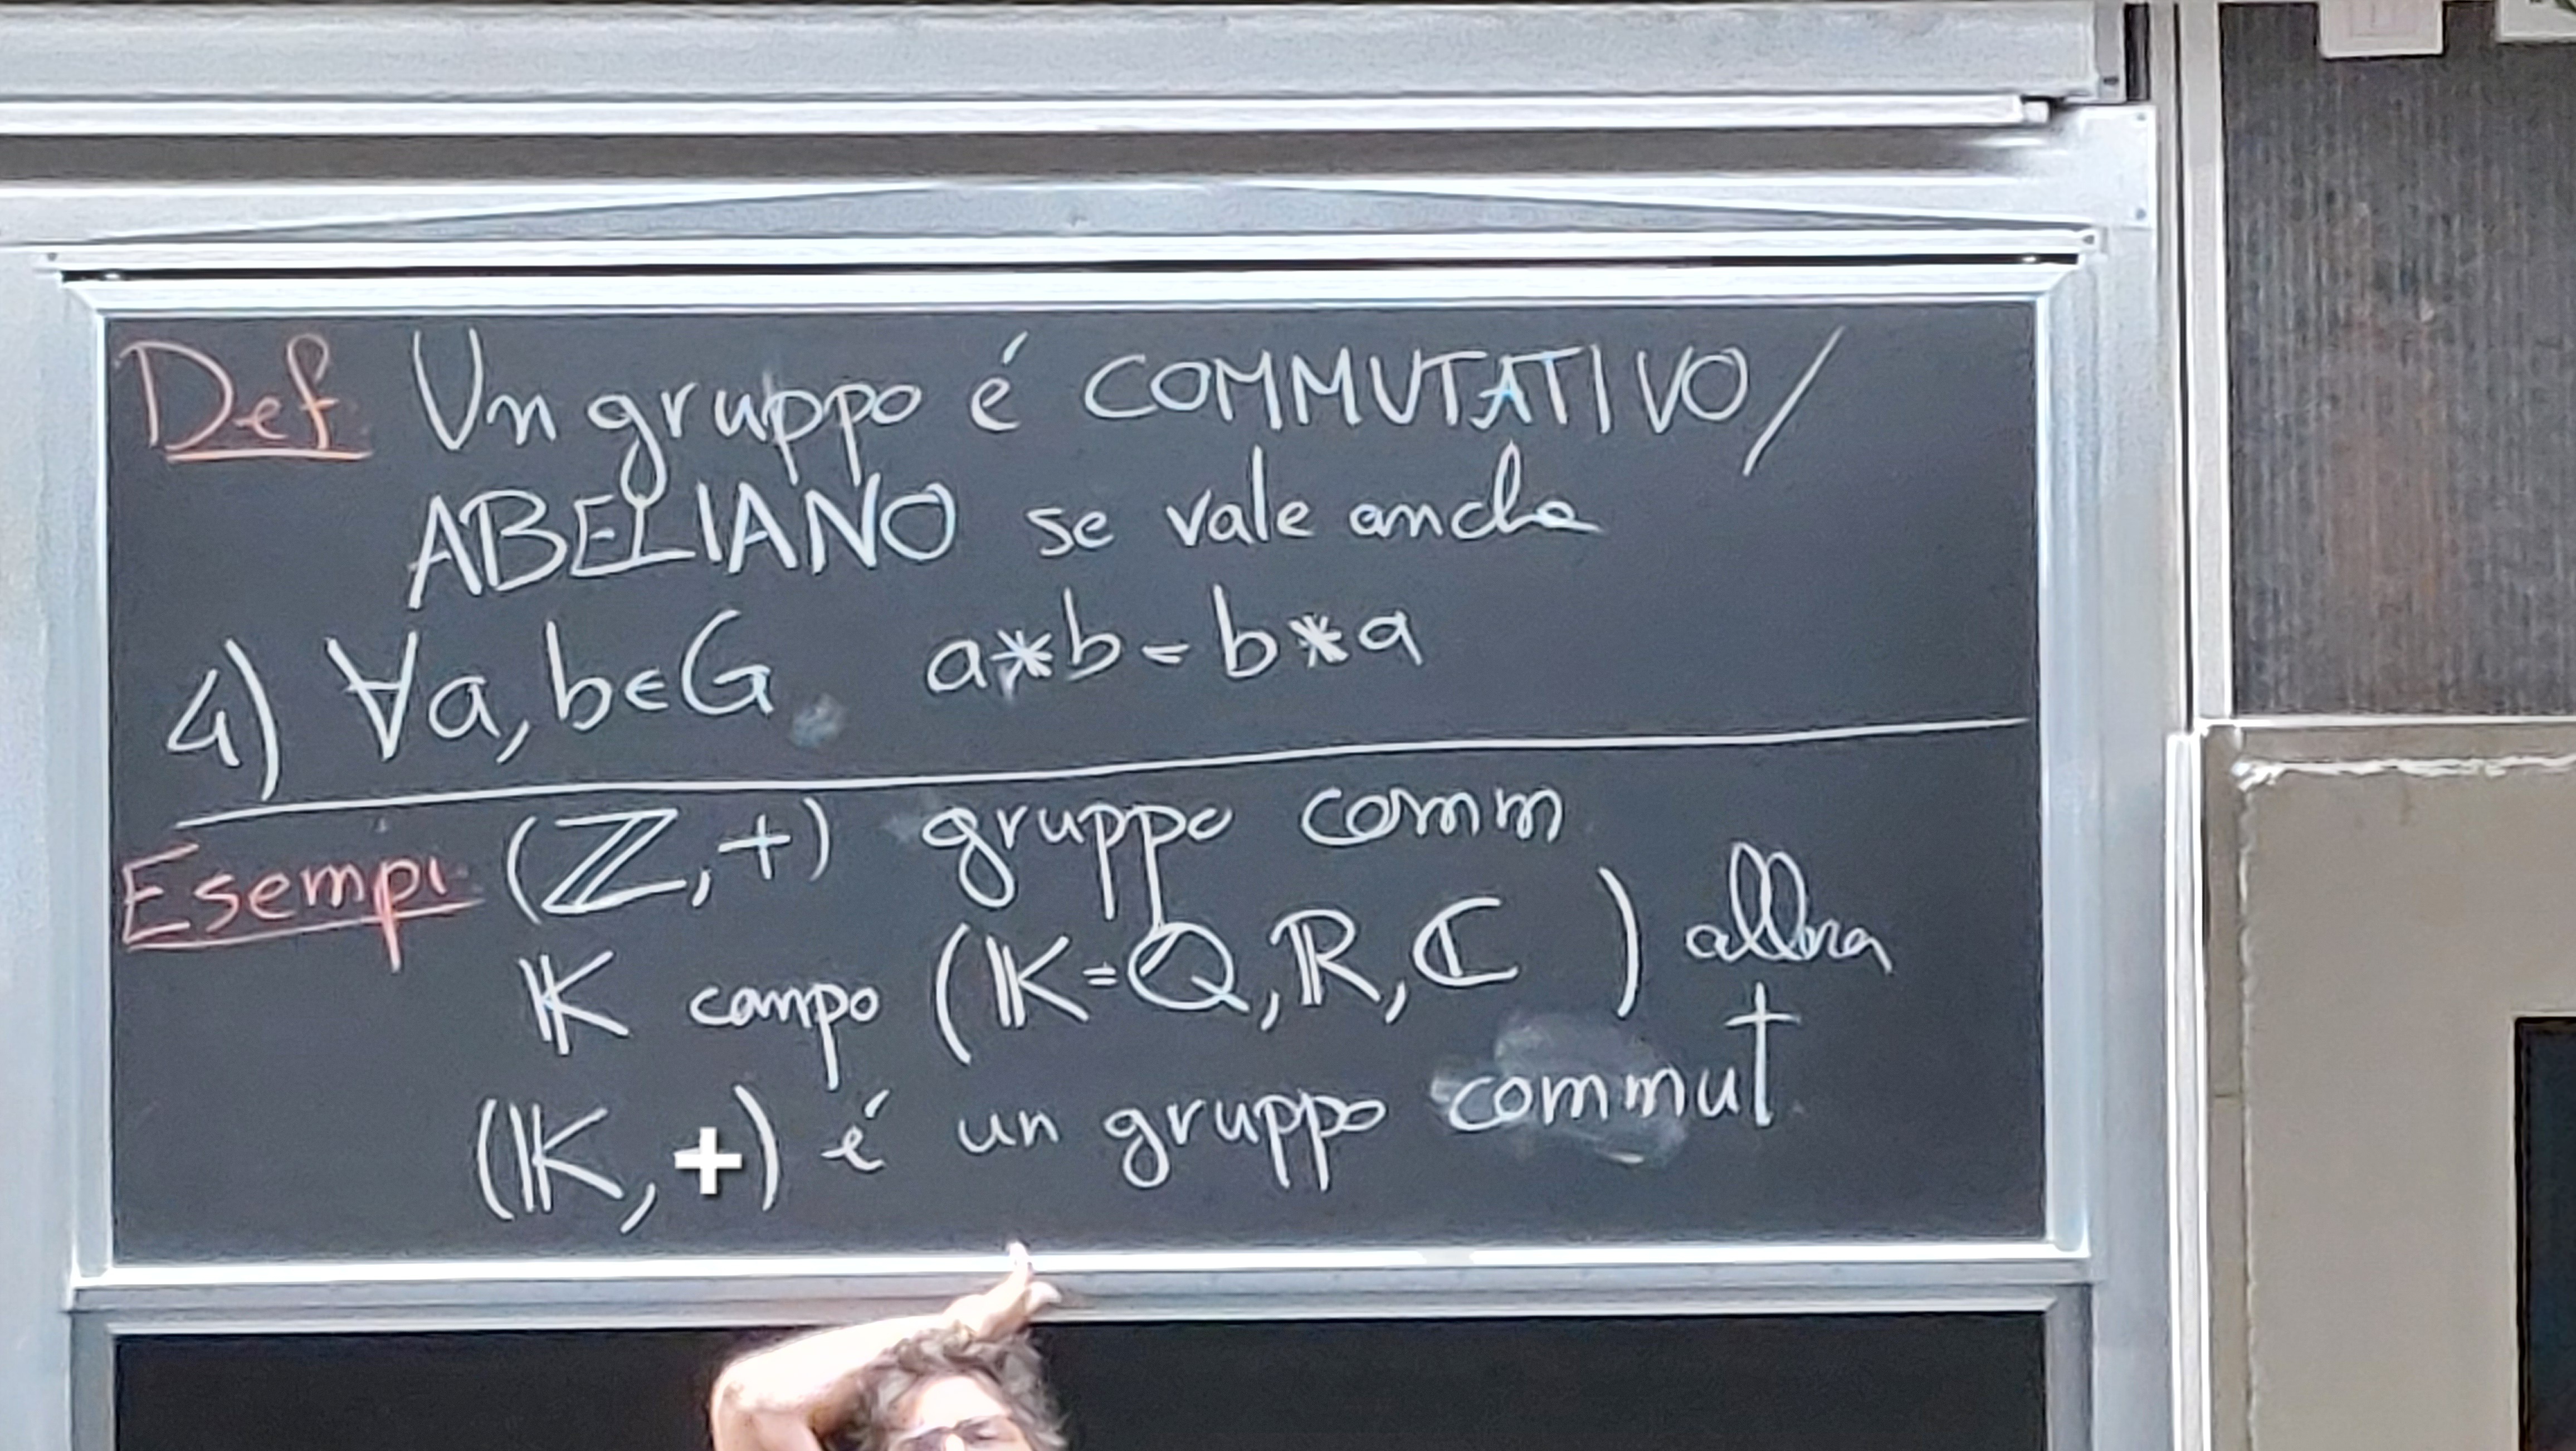 Def. Un gruppo é COMMUTATIVO/
ABELIANO se vale anche
4) ∀a, b∈G a*b = b*a
Esempi (ℤ,+) gruppo comm
𝕂 campo (𝕂=ℚ,ℝ,ℂ ) allora
(𝕂,+) é un gruppo commut